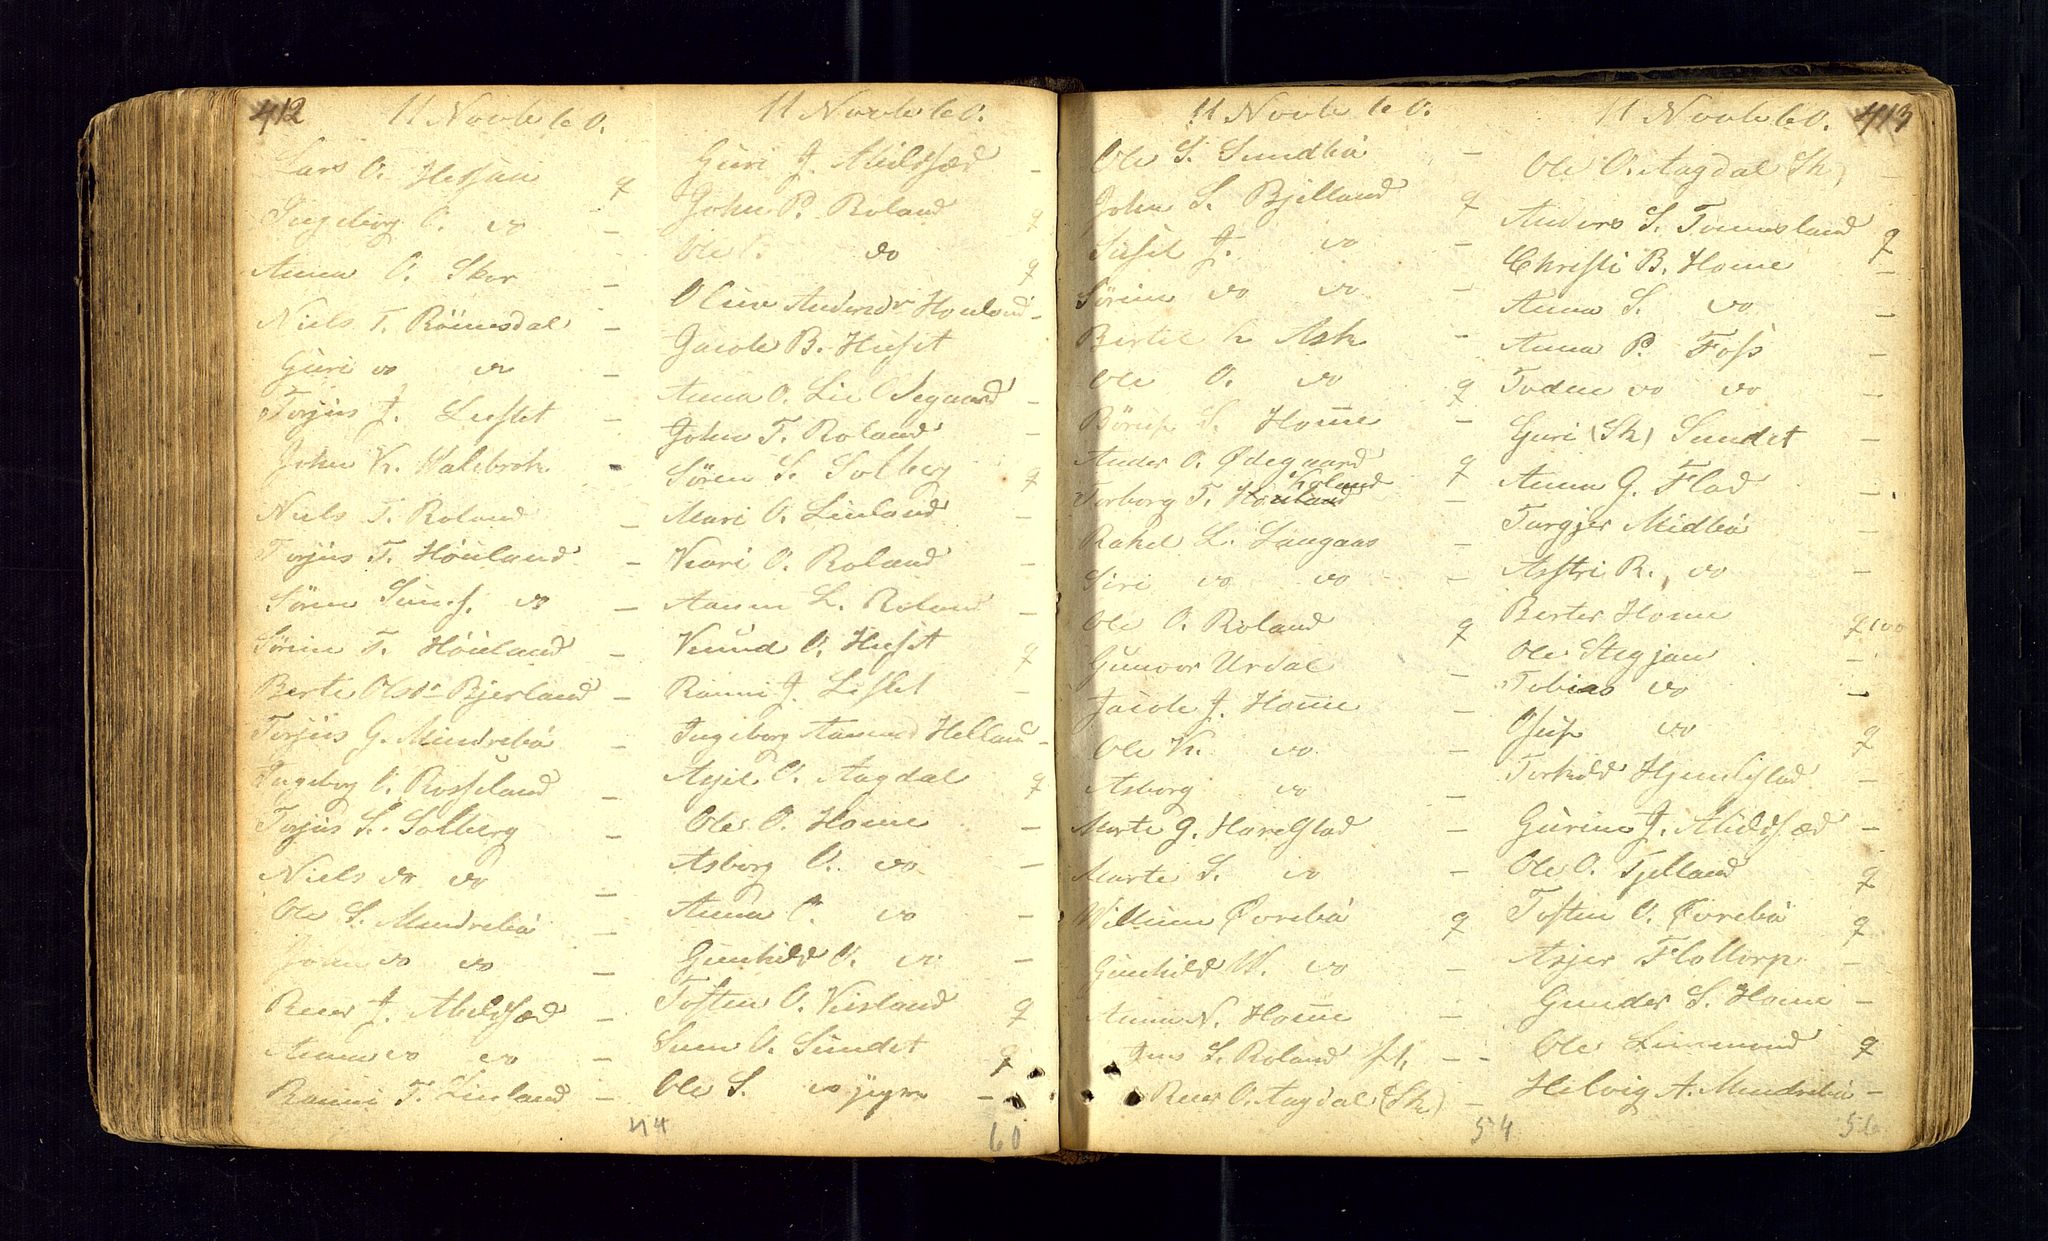 412
11 Novbr 60.
Lars O. Hessaa q
Ingeborg O. do –
Anna O. Skor –
Niels T. Röinesdal –
Guri do do –
Torjus J. Lieslet –
John K. Walebrok -
Niels T. Roland –
Torjus T. Höiland –
Sören Simes. do –
Sörine T. Höieland –
Berte Olsdr Bjerland –
Torjus G. Mindrebö –
Ingeborg O. Rosseland –
Torjus S. Solberg –
Niels do do –
Ole S. Mindrebö –
John do do –
Reier J. Abelsæd –
Anna do do –
Ranni T. Linland –
44
11 Novbr 60.
Guri J. Abildsæd –
John P. Roland q
Ole P. do q
Oline Andersdr Houland –
Jacob B. Huset
Anna O. Lie Odegaard –
John T. Roland –
Sören S. Solberg q
Mari O. Linland –
Kari O. Roland –
Aanen L. Roland –
Knud O. Huset q
Ranni J. Lislet –
Ingeborg Aanund Helland –
Asjel O. Aagdal q
Ole O. Home –
Asborg O. do –
Anna O. do –
Gunhild O. do –
Tosten O. Kisland q
Sven O. Sundet q
Ole S. do –
60
11 Novbr 60.
Ole S. Sundbö –
John S. Bjelland q
Sissel J. do –
Sörine do do –
Bertel K Ask –
Ole O. do q
Börup S. Home –
Anders O. Ødegaard q
Roland
Torborg T. Houland –
Rakel L. Langaas –
Siri do do –
Ole O. Roland q
Gunvor Urdal –
Jacob J. Home –
Ole K. do –
Asborg do –
Marte G. Harelstad –
Marte S. do –
Willum Øvrebö q
Gunhild W. do –
Anna N. Home –
Jens L. Roland –
Reier O. Aagdal (Sk) –
54
11 Novbr 60. 413
Ole O. Aagdal (Sk) –
Anders S. Tonnesland q
Christi B. Home –
Anna S. do –
Anna P. Foss –
Toden do do –
Guri (Sk) Sundet –
Anna G. Flod –
Turgjer Midbö –
Asstri R. do –
Berter Home q 100
Ole Stegjan –
Tobias do –
Osup do q
Torkild Hjemlestad –
Gurine J. Abildsæd –
Ole O. Tjelland q
Tosten O. Øvrebö q
Asjer Flottorp –
Gunder S. Home –
Ole Linmond q
Helvig A. Mindrebö –
56